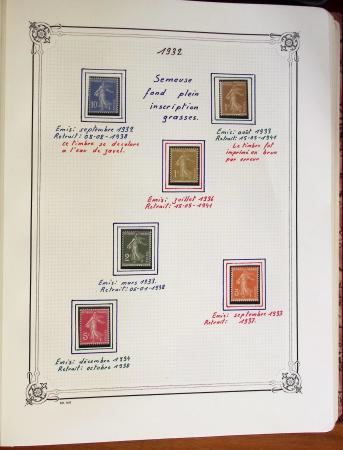 1932
Semeuse
fond plein
inscription
grasses.
Emis: septembre 1932
Retrait: 08-08-1938
Ce timbre se décolore
à l'eau de javel.
Emis: août 1933
Retrait: 15-09-1941
Le timbre fut
imprimé en brun
par erreur
Emis: juillet 1936
Retrait: 15-09-1941
Emis: mars 1933.
Retrait: 06-01-1938
Emis: septembre 1933
Retrait: 1937.
Emis: décembre 1934
Retrait: octobre 1938